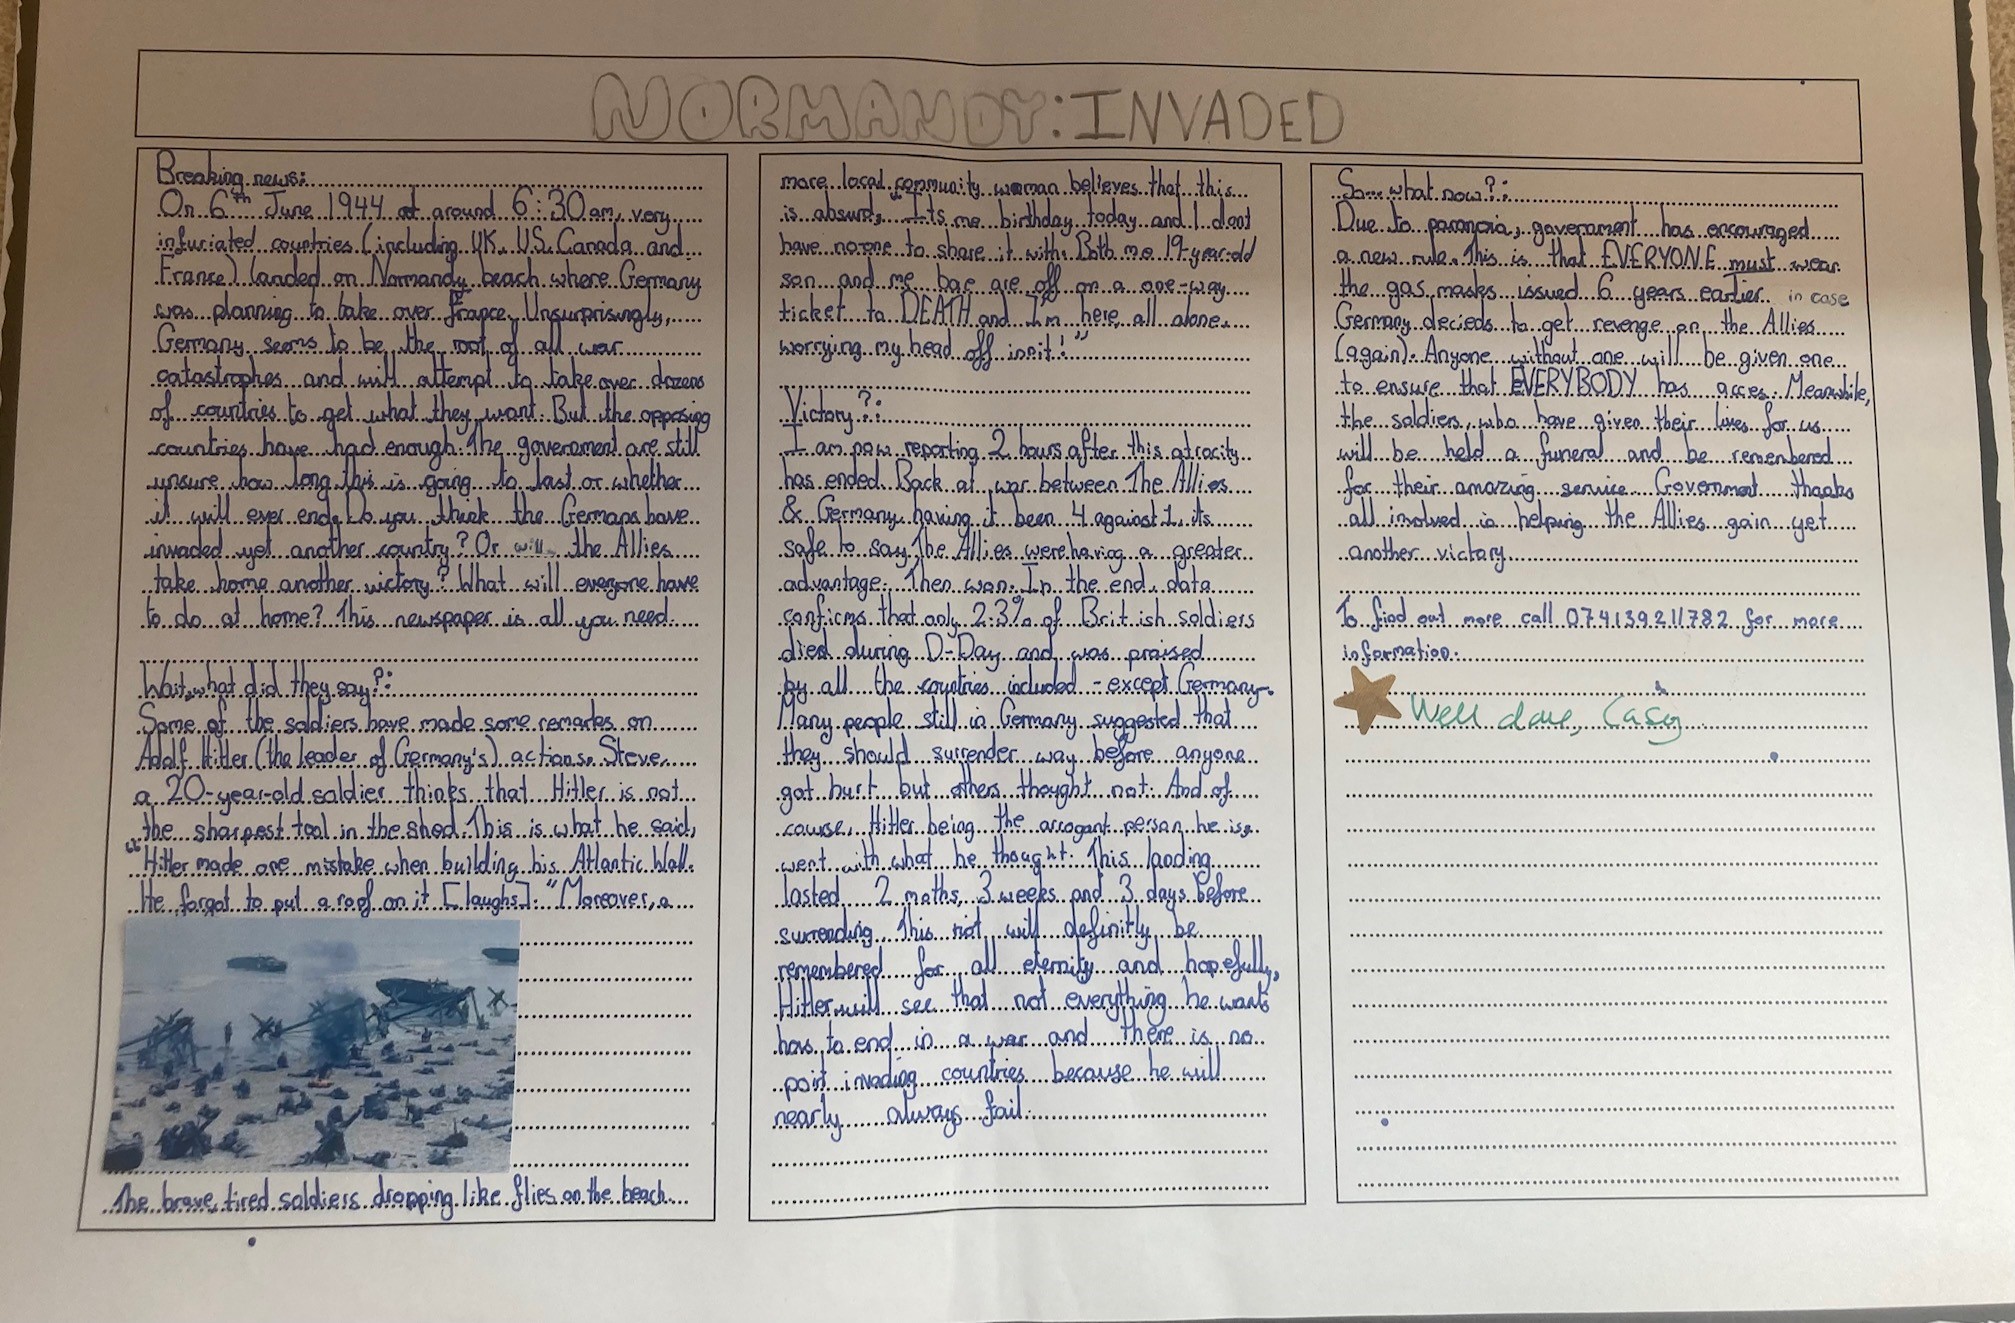 NORMANDY: INVADED
Breaking news:
On 6th June 1944 at around 6:30am, very
infuriated countries (including UK, US, Canada and
France) landed on Normandy beach where Germany
was planning to take over France. Unsurprisingly,
Germany seems to be the root of all war
catastrophes and will attempt to take over dozens
of countries to get what they want. But the opposing
countries have had enough. The government are still
unsure how long this is going to last or whether
it will ever end. Do you think the Germans have
invaded yet another country? Or will the Allies
take home another victory? What will everyone have
to do at home? This newspaper is all you need.
Wait, what did they say?:
Some of the soldiers have made some remarks on
Adolf Hitler (the leader of Germany's) actions. Steve,
a 20-year-old soldier thinks that Hitler is not
the sharpest tool in the shed. This is what he said,
"Hitler made one mistake when building his Atlantic Wall.
He forgot to put a roof on it [laughs]." Moreover, a
The brave, tired soldiers dropping like flies on the beach.
more local community woman believes that this
is absurd, "Its me birthday today and I dont
have no-one to share it with. Both me 19-year-old
son and me bae are off on a one-way
ticket to DEATH and I'm here all alone
worrying my head off innit!"
Victory?:
I am now reporting 2 hours after this atrocity
has ended. Back at war between The Allies
& Germany, having it been 4 against 1, its
safe to say The Allies were having a greater
advantage. Then won. In the end, data
confirms that only 2.3% of British soldiers
died during D-Day and was praised
by all the countries included - except Germany.
Many people still in Germany suggested that
they should surrender way before anyone
got hurt but others thought not. And of
course, Hitler being the arrogant person he is,
went with what he thought. This landing
lasted 2 moths, 3 weeks and 3 days before
surrending. This riot will definitly be
remembered for all eternity and hopefully,
Hitler will see that not everything he wants
has to end in a war and there is no
point invading countries because he will
nearly always fail.
So... what now?:
Due to paranoia, government has encouraged
a new rule. This is that EVERYONE must wear
the gas masks issued 6 years earlier in case
Germany decieds to get revenge on the Allies
(again). Anyone without one will be given one
to ensure that EVERYBODY has acces. Meanwhile,
the soldiers, who have given their lives for us
will be held a funeral and be remembered
for their amazing service. Government thanks
all involved in helping the Allies gain yet
another victory.
To find out more call 074139211782 for more
information.
Well done, Casey